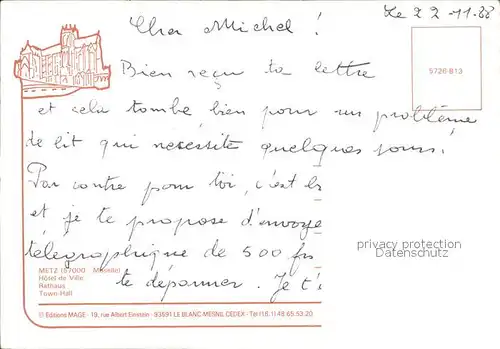 Le 22-11-88
Cher Michel !
5726 B13
Bien reçu ta lettre
et cela tombe bien pour un problème
de lit qui nécessite quelques jours.
Par contre pour toi, c'est
et je te propose d'envoye
télégraphique de 500 frs
te dépanner. Je t'
privacy protection
Datenschutz
METZ (57000 Moselle)
Hôtel de Ville
Rathaus
Town-Hall
© Editions MAGE - 19, rue Albert Einstein - 93591 LE BLANC MESNIL CEDEX - Tél (16.1) 48.65.53.20